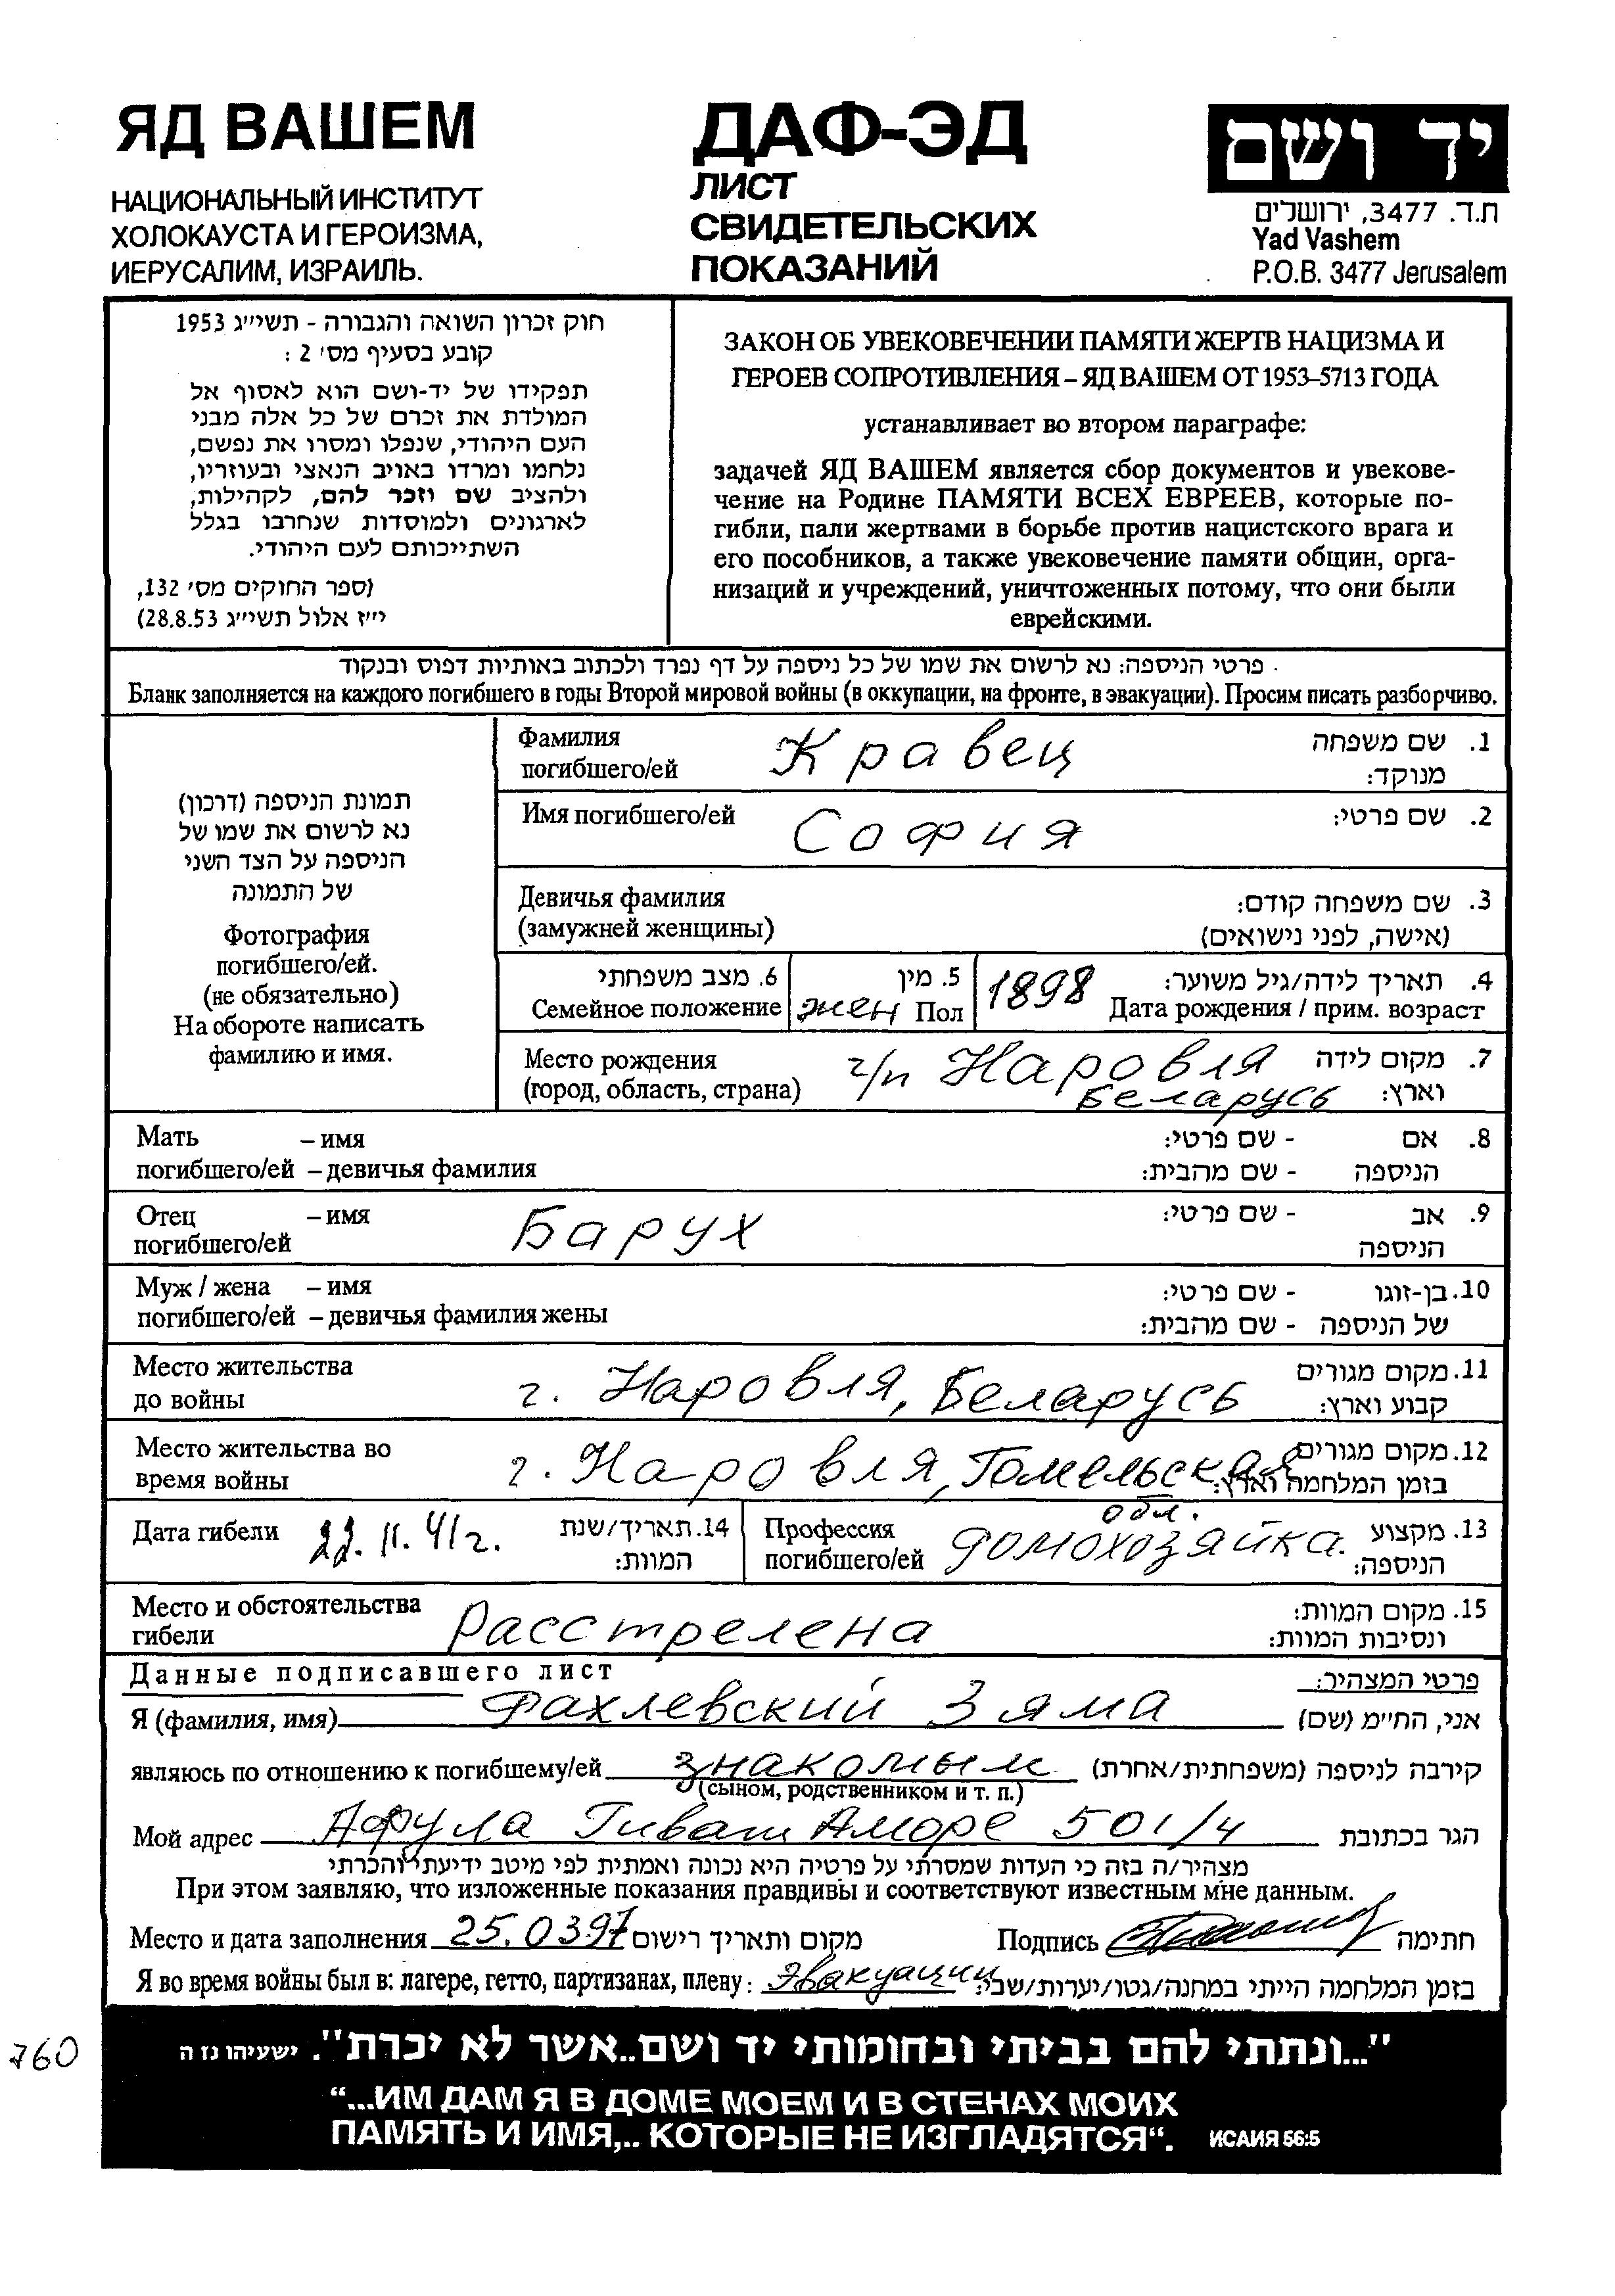 ЯД ВАШЕМ
НАЦИОНАЛЬНЫЙ ИНСТИТУТ
ХОЛОКАУСТА И ГЕРОИЗМА,
ИЕРУСАЛИМ, ИЗРАИЛЬ.
ДАФ-ЭД
ЛИСТ
СВИДЕТЕЛЬСКИХ
ПОКАЗАНИЙ
יד ושם
ת.ד. 3477, ירושלים
Yad Vashem
P.O.B. 3477 Jerusalem
חוק זכרון השואה והגבורה - תשי״ג 1953
קובע בסעיף מס׳ 2 :
תפקידו של יד-ושם הוא לאסוף אל
המולדת את זכרם של כל אלה מבני
העם היהודי, שנפלו ומסרו את נפשם,
נלחמו ומרדו באויב הנאצי ובעוזריו,
ולהציב שם וזכר להם, לקהילות,
לארגונים ולמוסדות שנחרבו בגלל
השתייכותם לעם היהודי.
(ספר החוקים מס׳ 132,
י״ז אלול תשי״ג 28.8.53)
ЗАКОН ОБ УВЕКОВЕЧЕНИИ ПАМЯТИ ЖЕРТВ НАЦИЗМА И
ГЕРОЕВ СОПРОТИВЛЕНИЯ – ЯД ВАШЕМ ОТ 1953–5713 ГОДА
устанавливает во втором параграфе:
задачей ЯД ВАШЕМ является сбор документов и увекове-
чение на Родине ПАМЯТИ ВСЕХ ЕВРЕЕВ, которые по-
гибли, пали жертвами в борьбе против нацистского врага и
его пособников, а также увековечение памяти общин, орга-
низаций и учреждений, уничтоженных потому, что они были
еврейскими.
פרטי הניספה: נא לרשום את שמו של כל ניספה על דף נפרד ולכתוב באותיות דפוס ובנקוד
Бланк заполняется на каждого погибшего в годы Второй мировой войны (в оккупации, на фронте, в эвакуации). Просим писать разборчиво.
תמונת הניספה (דרכון)
נא לרשום את שמו של
הניספה על הצד השני
של התמונה
Фотография
погибшего/ей.
(не обязательно)
На обороте написать
фамилию и имя.
Фамилия Кравец 1. שם משפחה
погибшего/ей מנוקד:
Имя погибшего/ей София 2. שם פרטי:
Девичья фамилия 3. שם משפחה קודם:
(замужней женщины) (אישה, לפני נישואים)
6. מצב משפחתי 5. מין 4. תאריך לידה/גיל משוער:
Семейное положение жен Пол 1898 Дата рождения / прим. возраст
Место рождения г/п Наровля 7. מקום לידה
(город, область, страна) Беларусь וארץ:
Мать – имя 8. אם - שם פרטי:
погибшего/ей – девичья фамилия הניספה - שם מהבית:
Отец – имя Барух 9. אב - שם פרטי:
погибшего/ей הניספה
Муж / жена – имя 10. בן-זוגו - שם פרטי:
погибшего/ей – девичья фамилия жены של הניספה - שם מהבית:
Место жительства 11. מקום מגורים
до войны г. Наровля, Беларусь קבוע וארץ:
Место жительства во 12. מקום מגורים
время войны г. Наровля, Гомельская בזמן המלחמה וארץ:
обл.
Дата гибели 22.11.41г. 14. תאריך/שנת
המוות:
Профессия домохозяйка. 13. מקצוע
погибшего/ей הניספה:
Место и обстоятельства 15. מקום המוות:
гибели Расстрелена ונסיבות המוות:
Данные подписавшего лист פרטי המצהיר:
Я (фамилия, имя) Фахлевский Зяма אני, החי״מ (שם)
являюсь по отношению к погибшему/ей знакомым קירבה לניספה (משפחתית/אחרת)
(сыном, родственником и т. п.)
Мой адрес Афула Гиват Аморе 501/4 הגר בכתובת
מצהיר/ה בזה כי העדות שמסרתי על פרטיה היא נכונה ואמתית לפי מיטב ידיעתי והכרתי
При этом заявляю, что изложенные показания правдивы и соответствуют известным мне данным.
Место и дата заполнения 25.0397 מקום ותאריך רישום Подпись חתימה
Я во время войны был в: лагере, гетто, партизанах, плену: эвакуации בזמן המלחמה הייתי במחנה/גטו/יערות/שבי:
760
"...ונתתי להם בביתי ובחומותי יד ושם..אשר לא יכרת". ישעיהו נז ה
“...ИМ ДАМ Я В ДОМЕ МОЕМ И В СТЕНАХ МОИХ
ПАМЯТЬ И ИМЯ,.. КОТОРЫЕ НЕ ИЗГЛАДЯТСЯ“. ИСАИЯ 56:5